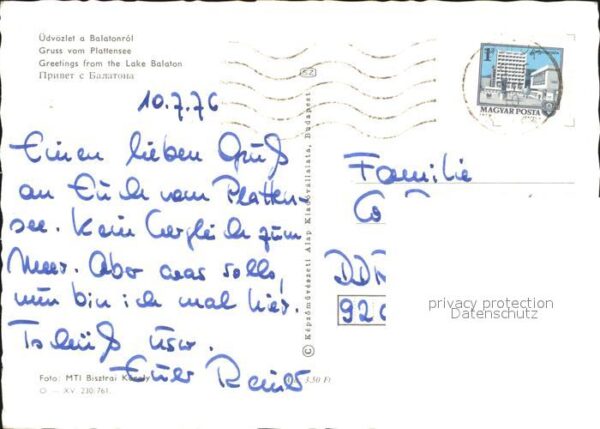 Üdvözlet a Balatonról
Gruss vom Plattensee
Greetings from the Lake Balaton
Привет с Балатона
10.7.76
Einen lieben Gruß
an Euch vom Platten-
see. Kein Vergleich zum
Meer. Aber was solls,
nun bin ich mal hier.
Tschüß usw.
Euer
Foto: MTI Bisztrai Károly
3.50 Ft
© Képzőművészeti Alap Kiadóvállalata, Budapest
1Ft
MAGYAR POSTA
Familie
DDR
privacy protection
Datenschutz